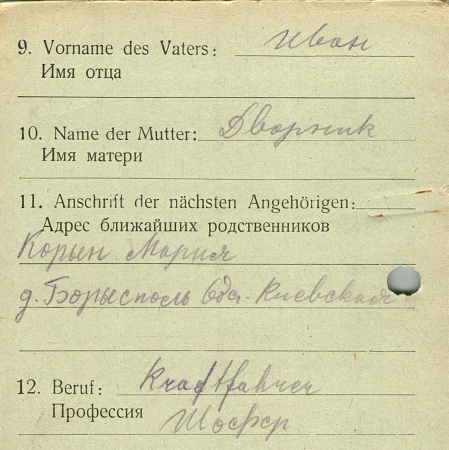 9. Vorname des Vaters: Иван
Имя отца
10. Name der Mutter: Дворник
Имя матери
11. Anschrift der nächsten Angehörigen:
Адрес ближайших родственников
Корын Мария
д. Борысполь Обл. Киевская
12. Beruf: Kraftfahrer
Профессия Шофер